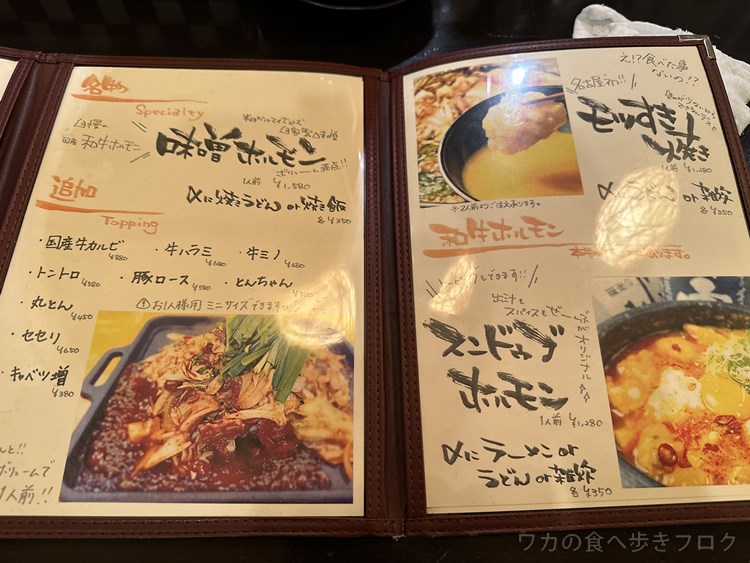 名物
Specialty
自慢の
国産 和牛ホルモン
味噌ホルモン
1人前 ¥1,580
〆に焼うどん or 焼飯
各¥350
追加
Topping
・国産牛カルビ ¥880
・牛ハラミ ¥680
・牛ミノ ¥680
・トントロ ¥580
・豚ロース ¥580
・とんちゃん
・丸とん ¥450
! お1人様用 ミニサイズできます。
・セセリ ¥650
・キャベツ増 ¥380
ボリュームで
1人前!!
え!?食べた事
ないの!?
名古屋初!!
すき焼き
ホルモン
1人前 ¥1,280
〆にうどん or 雑炊
各¥350
※2人前よりご注文承ります。
和牛ホルモン
トッピングもできます!!
出汁と
スパイスとぜーんぶがオリジナル
スンドゥブ
ホルモン
1人前 ¥1,280
〆にラーメン or
うどん or 雑炊
各¥350
ワカの食べ歩きブログ